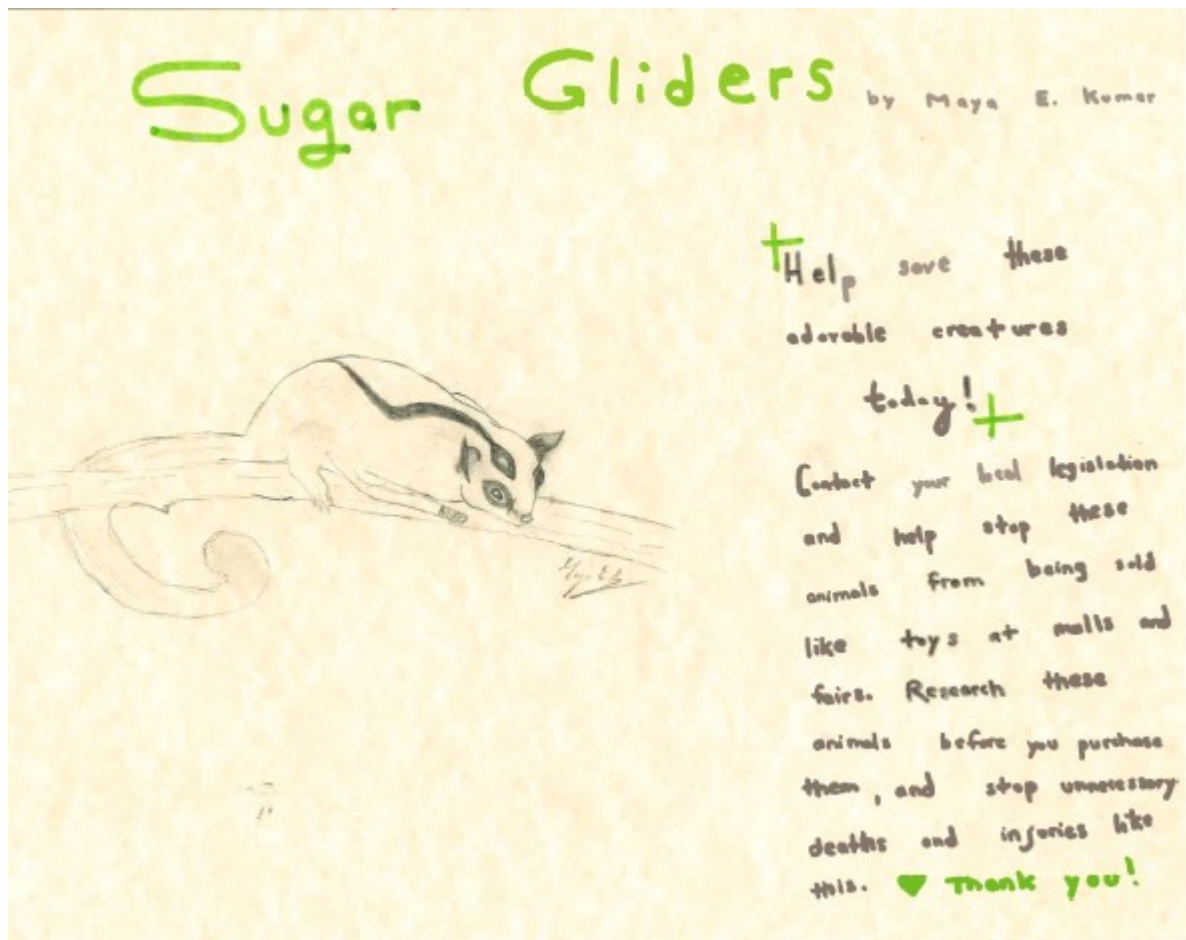 Sugar Gliders by Maya E. Kumar
Help save these
adorable creatures
today!
Contact your local legislation
and help stop these
animals from being sold
like toys at malls and
fairs. Research these
animals before you purchase
them, and stop unnecessary
deaths and injuries like
this. ♥ Thank you!